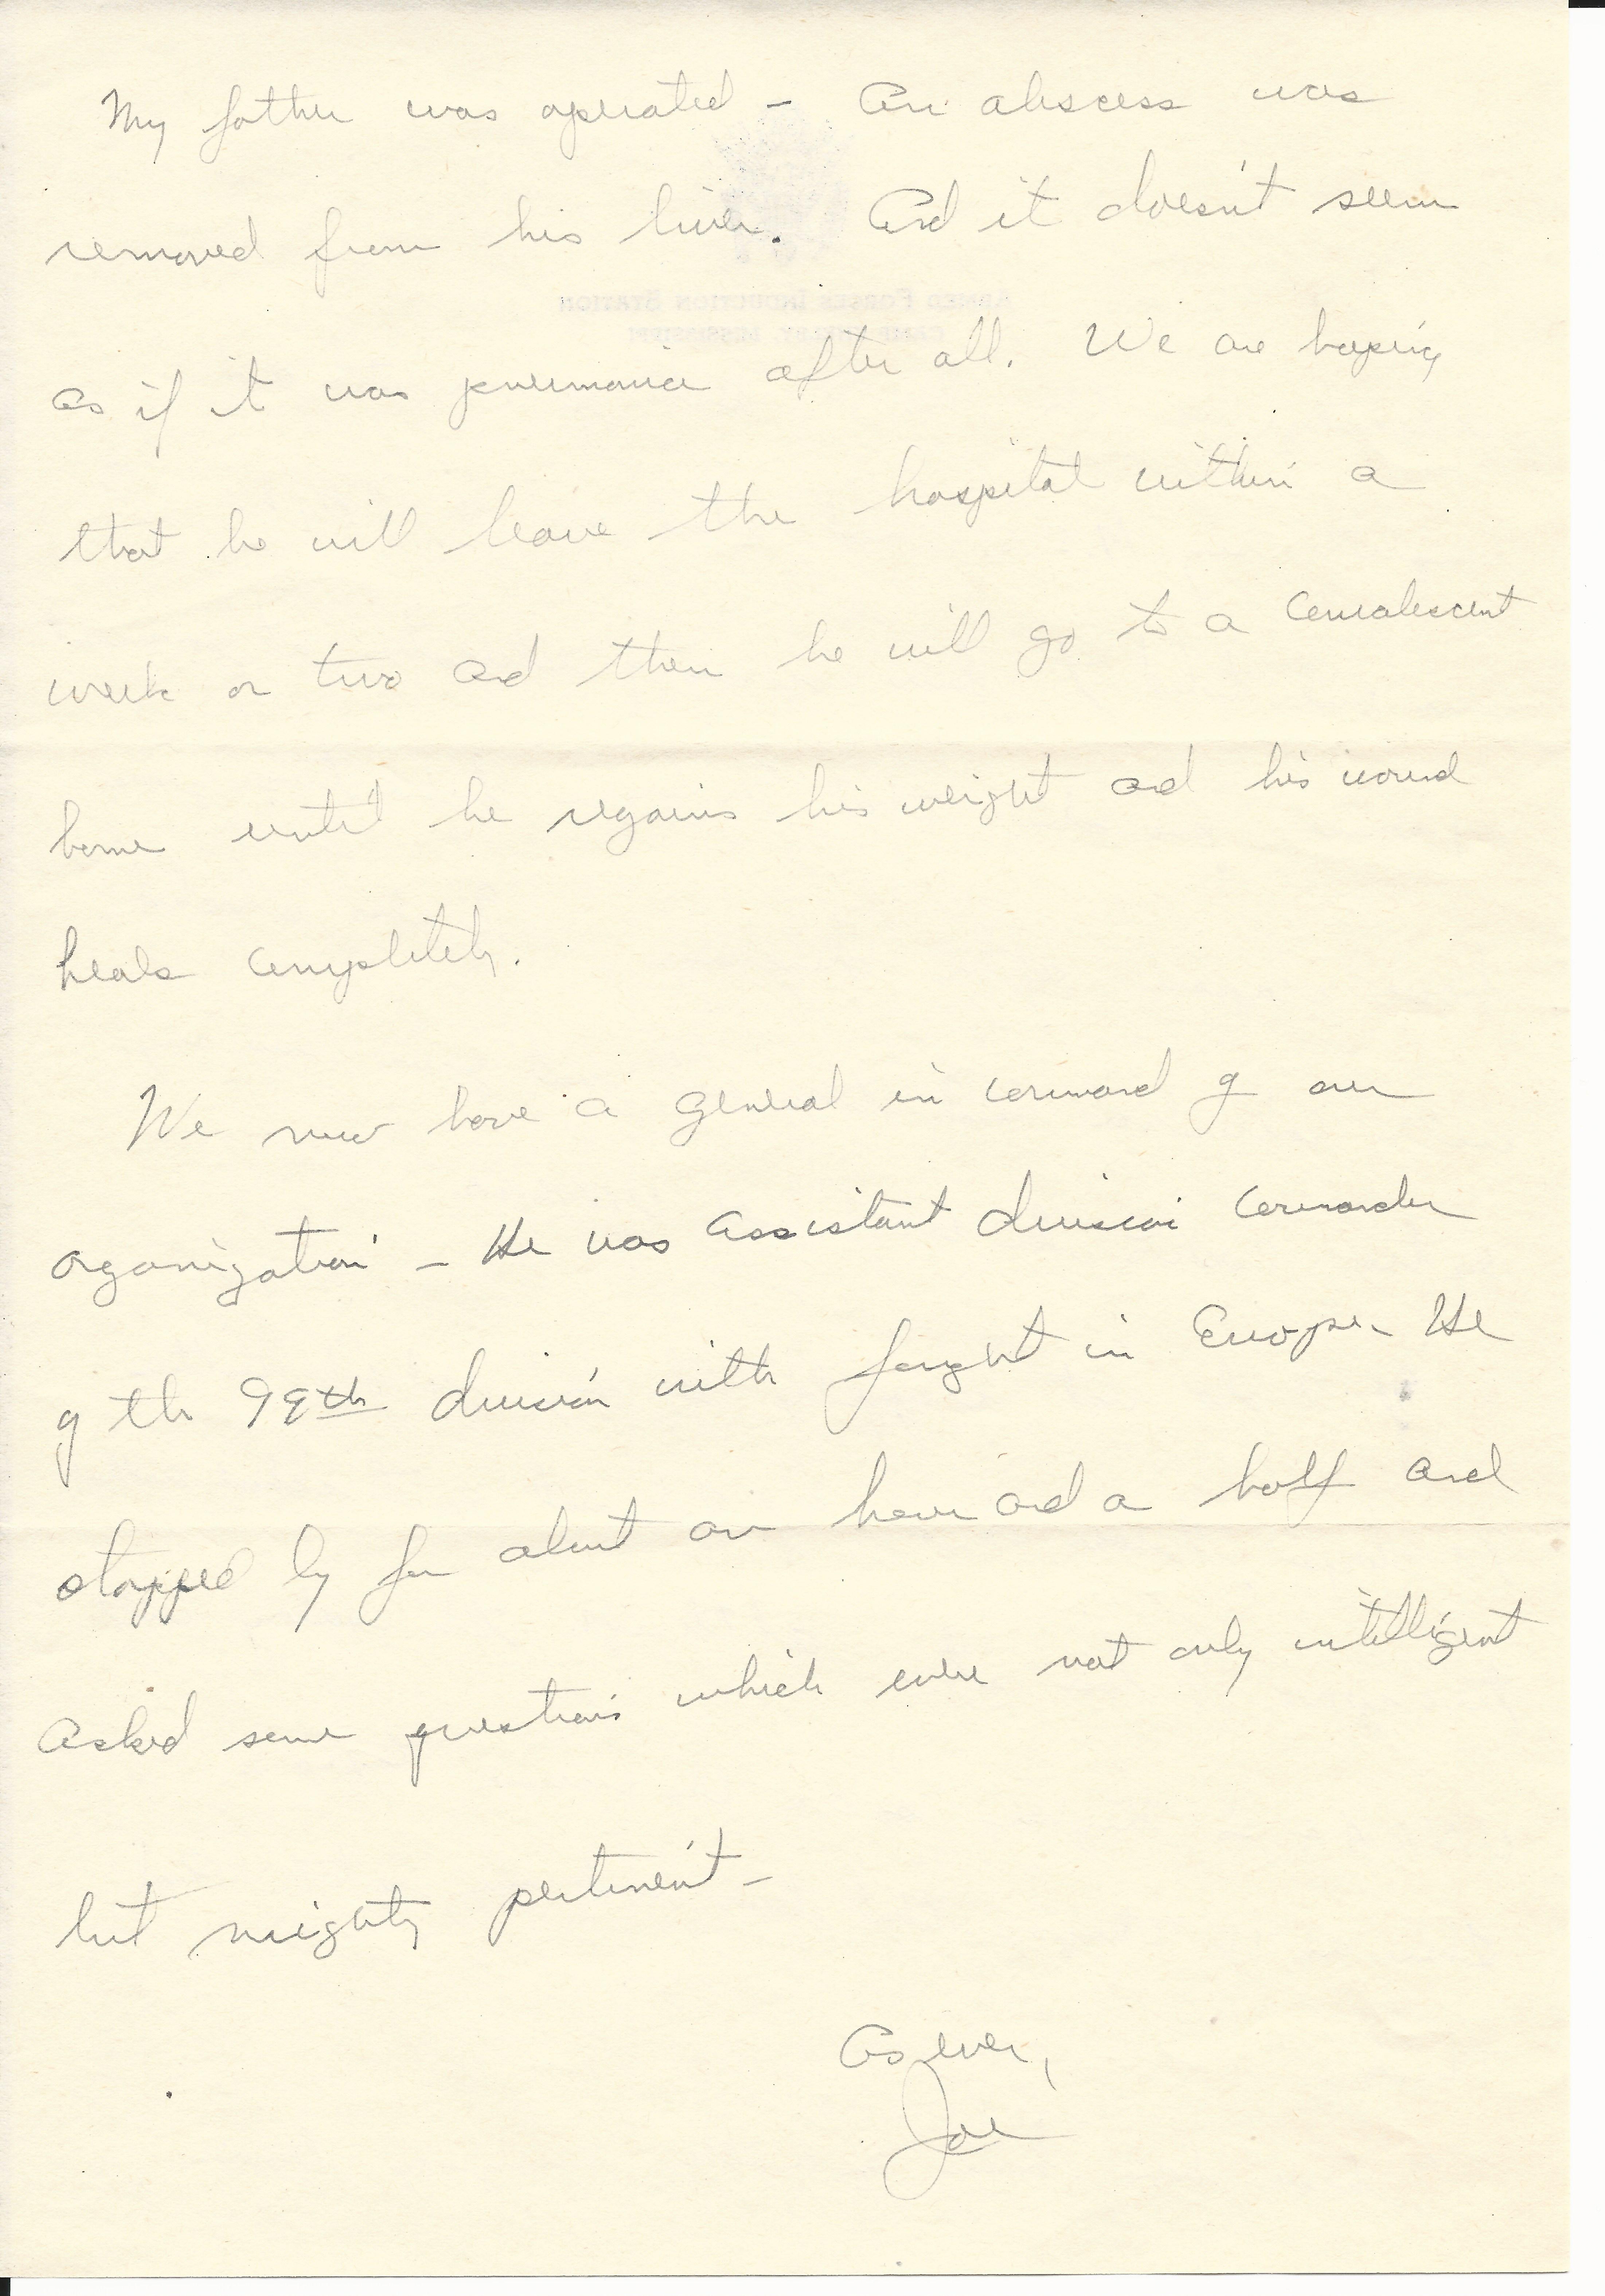 My father was operated – An abscess was
removed from his liver. And it doesn't seem
as if it was pneumonia after all. We are hoping
that he will leave the hospital within a
week or two and then he will go to a convalescent
home until he regains his weight and his wound
heals completely.
We now have a general in command of our
organization – He was assistant division commander
of the 99th division with fought in Europe – He
stopped by for about an hour and a half and
asked some questions which were not only intelligent
but mighty pertinent –
As ever,
Joe
ARMED FORCES INDUCTION STATION
CAMP SHELBY, MISSISSIPPI